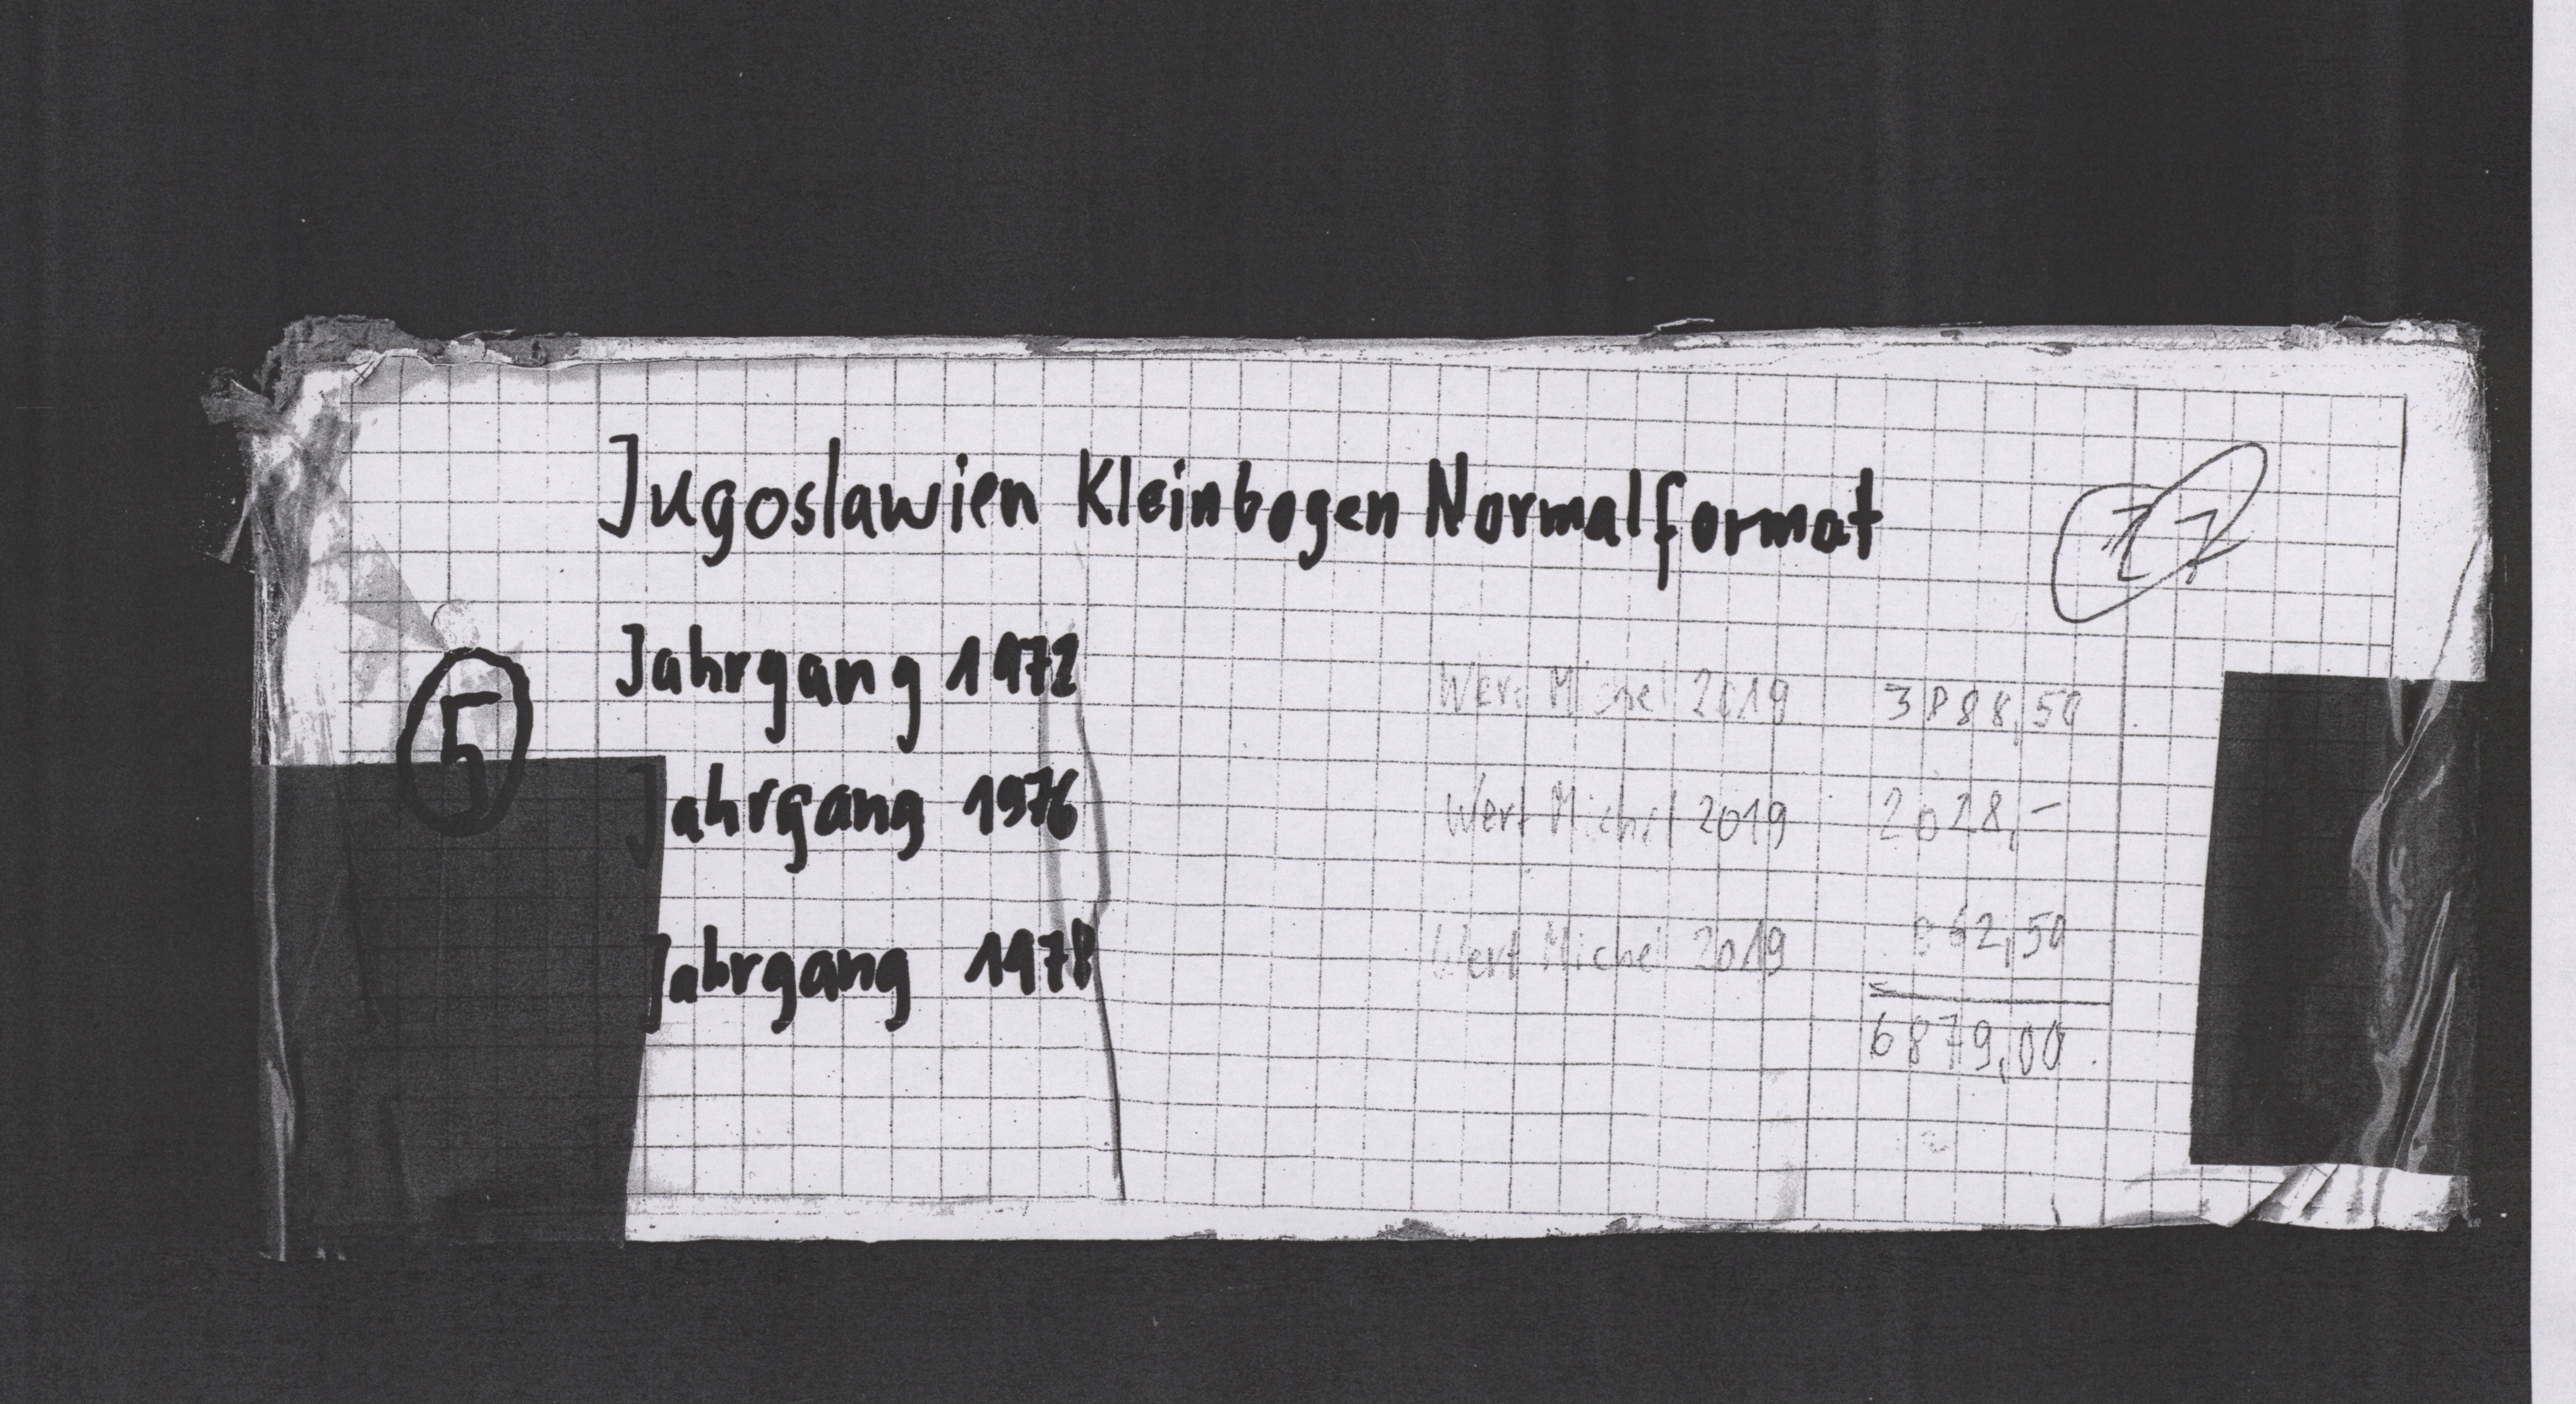 Jugoslawien Kleinbogen Normalformat
5
Jahrgang 1972 Wert Michel 2019 3888,50
Jahrgang 1976 Wert Michel 2019 2028,–
Jahrgang 1978 Wert Michel 2019 962,50
6879,00